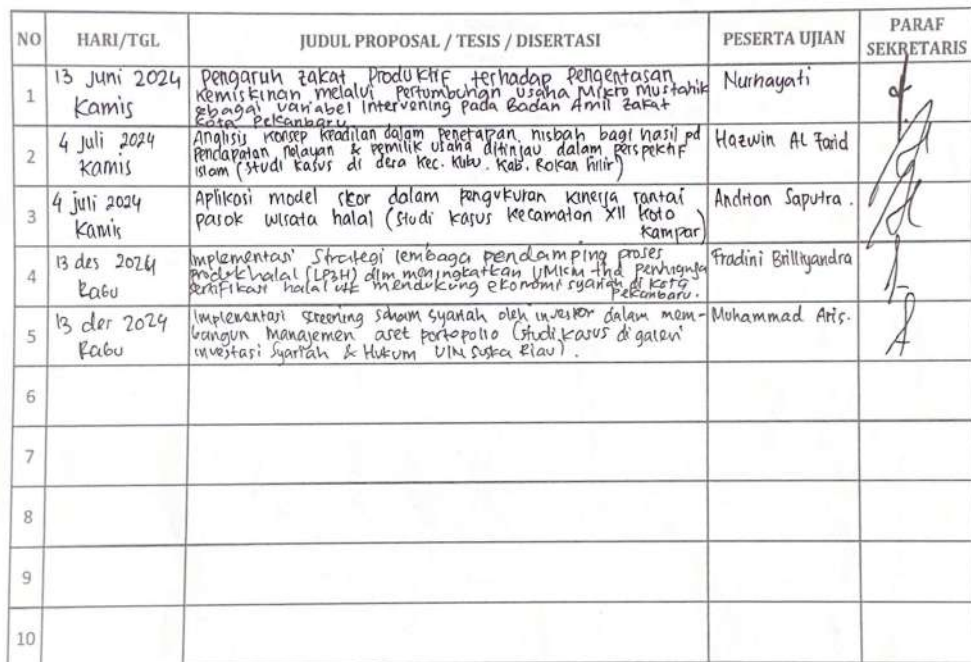 NO HARI/TGL JUDUL PROPOSAL / TESIS / DISERTASI PESERTA UJIAN PARAF SEKRETARIS
1
13 Juni 2024
Kamis
Pengaruh zakat Produktif terhadap Pengentasan
Kemiskinan melalui Pertumbuhan usaha Mikro Mustahik
sebagai variabel Intervening pada Badan Amil Zakat
Kota Pekanbaru
Nurhayati
2
4 Juli 2024
Kamis
Analisis Konsep Keadilan dalam Penetapan nisbah bagi hasil pd
Pendapatan nelayan & pemilik usaha ditinjau dalam perspektif
islam (studi kasus di desa Kec. Kubu. Kab. Rokan hilir)
Hazwin AL Farid
3
4 juli 2024
Kamis
Aplikasi model skor dalam pengukuran kinerja rantai
pasok wisata halal (studi kasus Kecamatan XII Koto
Kampar)
Saputra.
4
13 des 2024
Rabu
Implementasi Strategi lembaga pendamping proses
produk halal (LP3H) dlm meningkatkan UMKM thd pentingnya
sertifikasi halal utk mendukung ekonomi syariah di Kota
Pekanbaru.
Fradini Brilliyandra
5
13 des 2024
Rabu
Implementasi Screening saham syariah oleh investor dalam mem-
bangun manajemen aset portopolio (studi kasus di galeri
investasi Syariah & Hukum UIN Suska Riau).
Muhammad Aris.
6
7
8
9
10